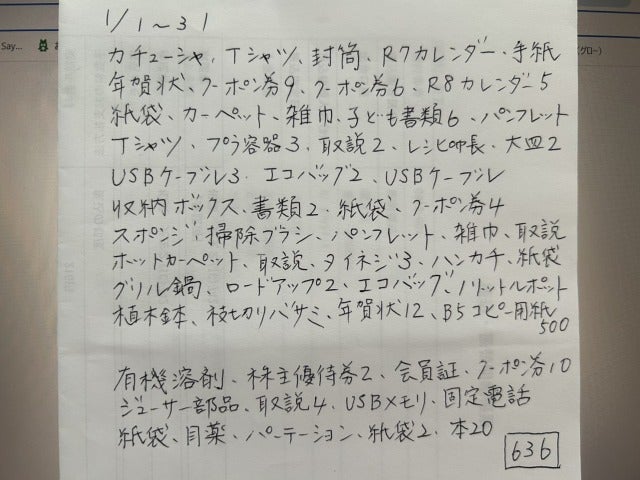 Say...
1/1～31
カチューシャ、Tシャツ、封筒、R7カレンダー、手紙
年賀状、クーポン券9、クーポン券6、R8カレンダー5
紙袋、カーペット、雑巾、子ども書類6、パンフレット
Tシャツ、プラ容器3、取説2、レシピ帳、大皿2
USBケーブル3、エコバッグ2、USBケーブル
収納ボックス、書類2、紙袋、クーポン券4
スポンジ、掃除ブラシ、パンフレット、雑巾、取説
ホットカーペット、取説、タイネジ3、ハンカチ、紙袋
グリル鍋、ロードアップ2、エコバッグ、ノリットルポット
植木鉢、枝切りバサミ、年賀状12、B5コピー用紙
500
有機溶剤、株主優待券2、会員証、クーポン券10
ジューサー部品、取説4、USBメモリ、固定電話
紙袋、目薬、パーテーション、紙袋2、本20
636